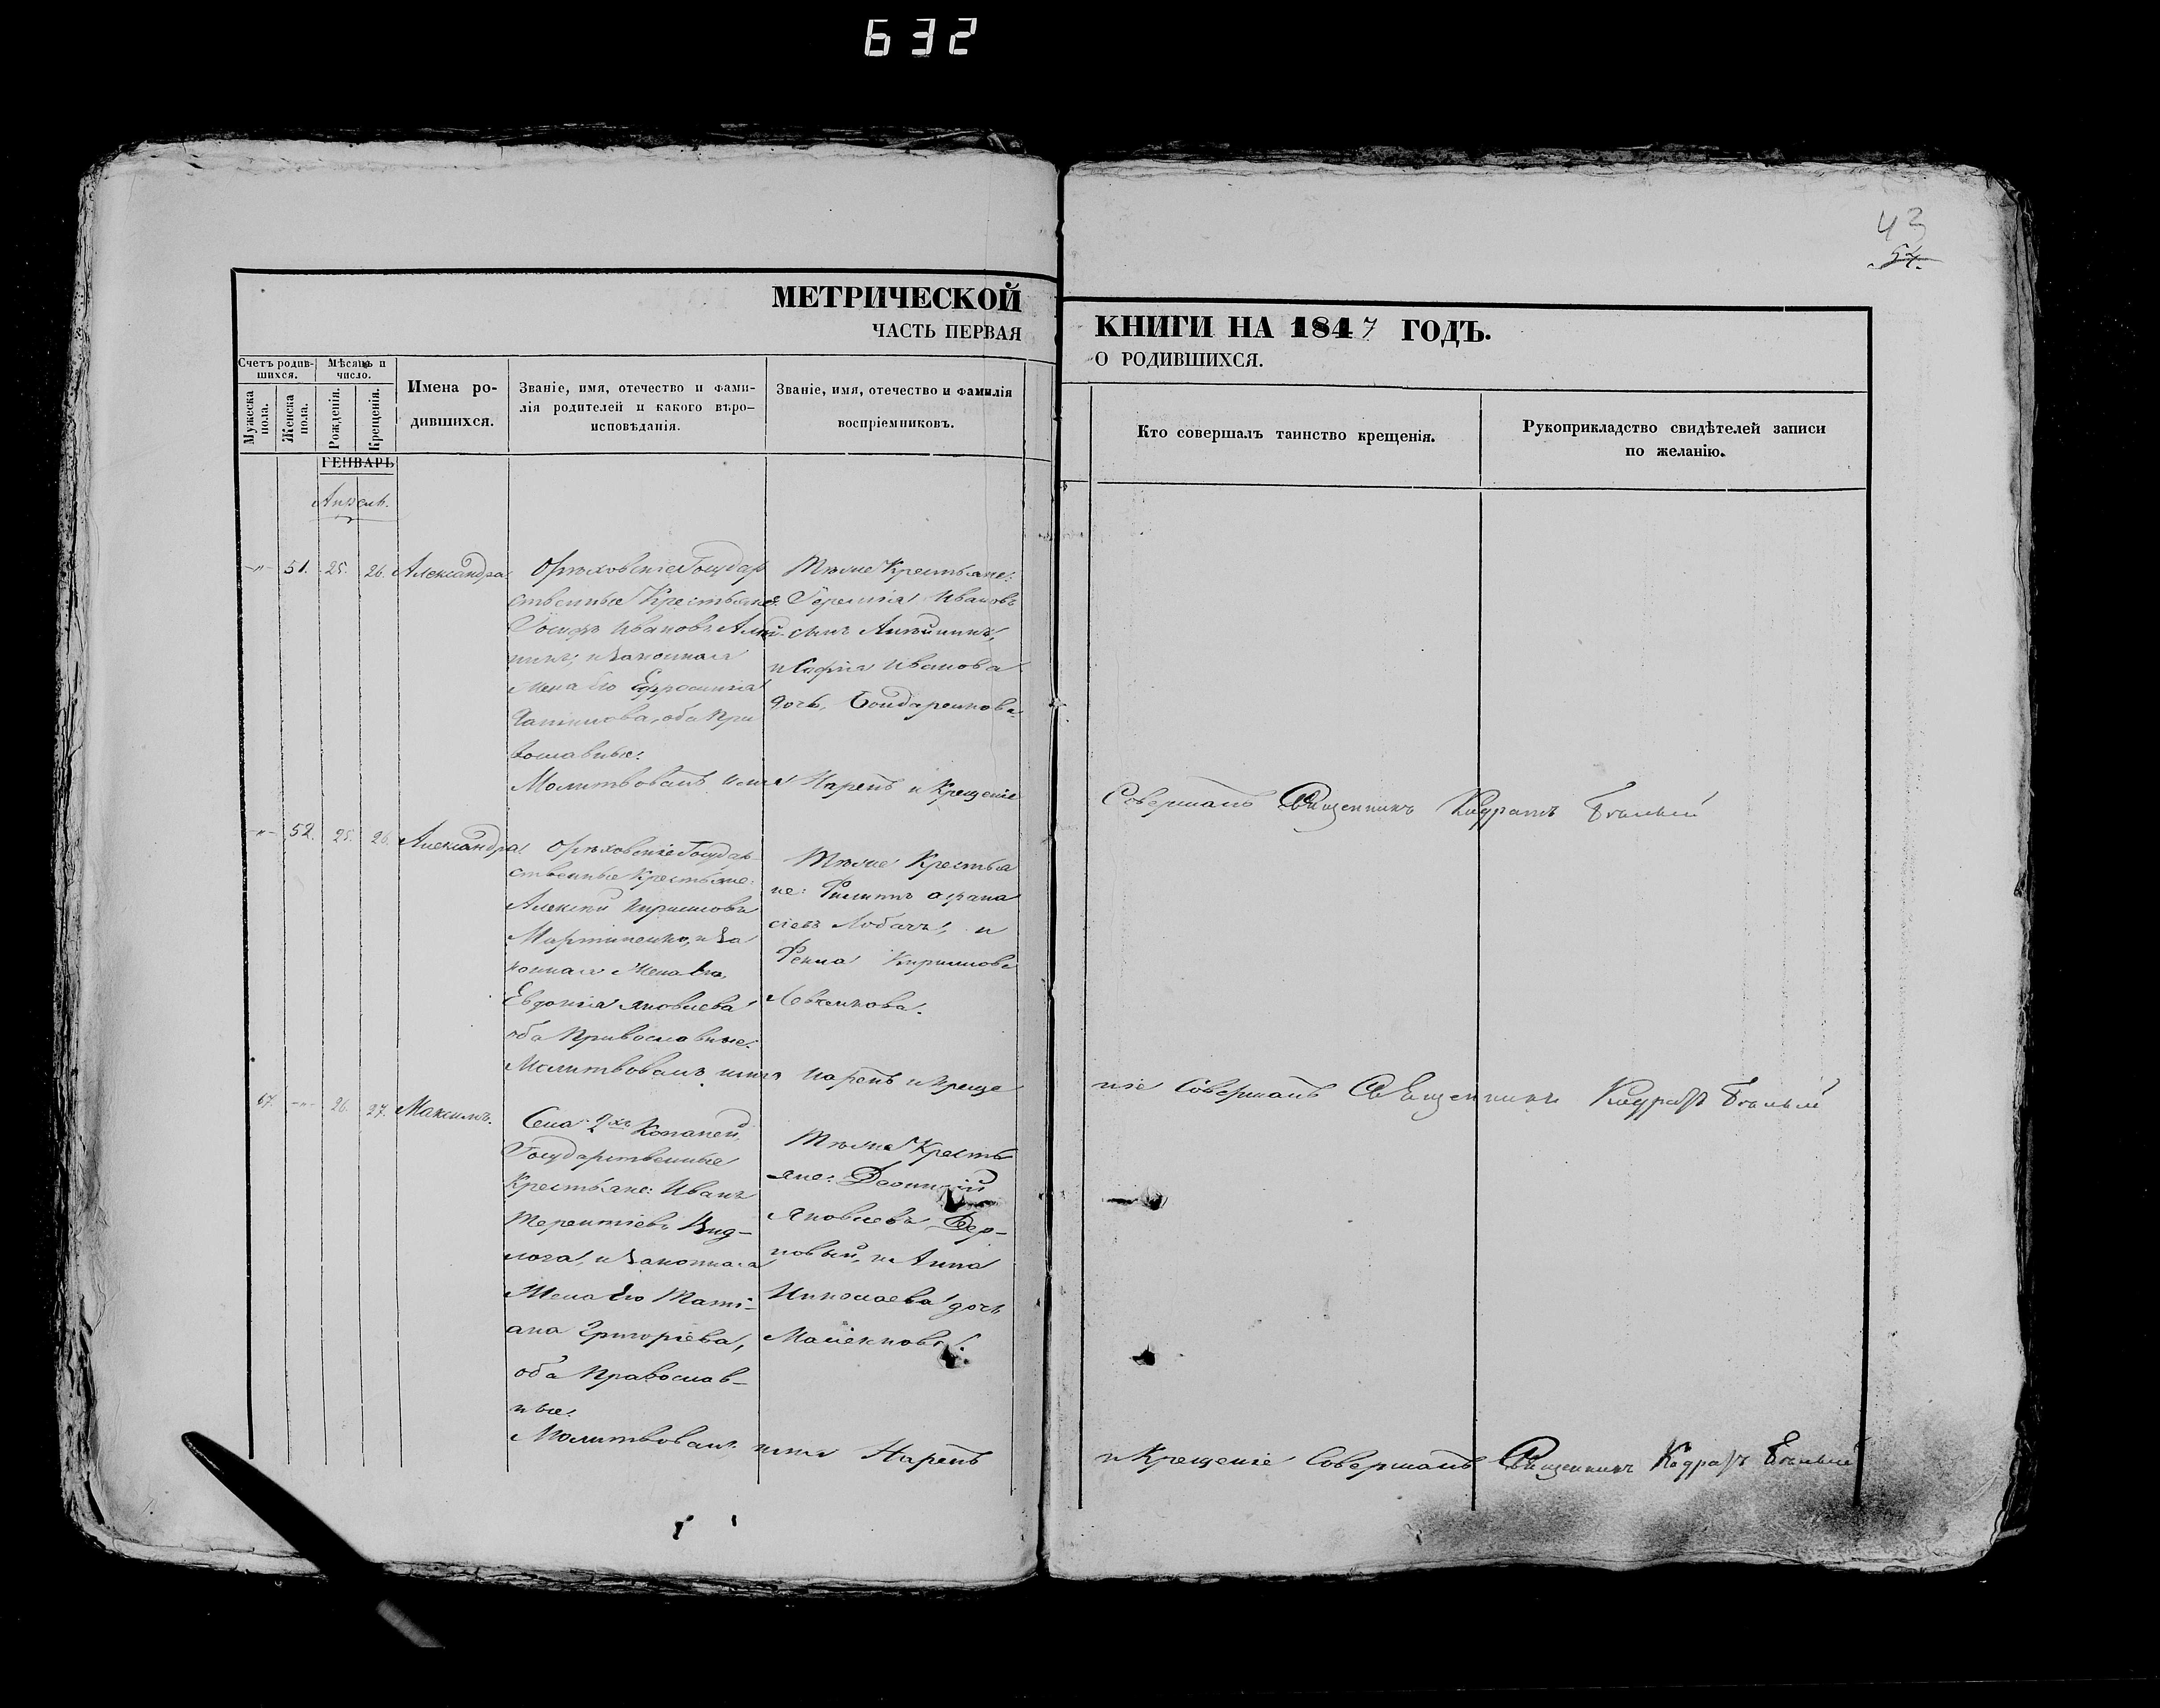 632
43
54.
МЕТРИЧЕСКОЙ
ЧАСТЬ ПЕРВАЯ
КНИГИ НА 1847 ГОДЪ.
О РОДИВШИХСЯ.
Счетъ родив-
шихся.
Мѣсяцъ и
число.
Мужеска
пола.
Женска
пола.
Рожденія.
Крещенія.
Имена ро-
дившихся.
Званіе, имя, отечество и фами-
лія родителей и какого вѣро-
исповѣданія.
Званіе, имя, отечество и фамилія
воспріемниковъ.
Кто совершалъ таинство крещенія.
Рукоприкладство свидѣтелей записи
по желанію.
ГЕНВАРЬ
Апрель.
-"- 51. 25. 26. Александра
Орѣховскіе Государ
ственные Крестьяне:
Іосифъ Ивановъ
и законная
жена Его Ефросинія
оба Пра
вославные.
Тѣже Крестьяне:
Іеремія Ивановъ
сынъ
и Софія Иванова
дочь, Бондаренкова.
Молитвовалъ имя Нарекъ и Крещеніе
Совершалъ Священникъ Кодратъ Бѣлый
-"- 52. 25. 26. Александра
Орѣховскіе Государ-
ственные Крестьяне:
Алексѣй Кириловъ
Мартиненко, и за
конная Жена Его,
Евдокія Яковлева
оба Православные.
Тѣже Крестья
не: Филипъ Афана
сіевъ Лобачъ, и
Фекла Кирилова
Левченкова.
Молитвовалъ имя Нарекъ и Креще
ніе Совершалъ Священникъ Кодратъ Бѣлый
67. -"- 26. 27. Максимъ.
Села 2хъ Копаней,
Государственные
Крестьяне: Иванъ
Терентіевъ
и Законная
Жена Его Тати-
ана Григоріева,
оба Православ-
ные.
Тѣже Кресть
яне:
Яковлевъ
и Анна
Николаева дочь
Молитвовалъ имя Нарекъ
и Крещеніе Совершалъ Священникъ Кодратъ Бѣлый